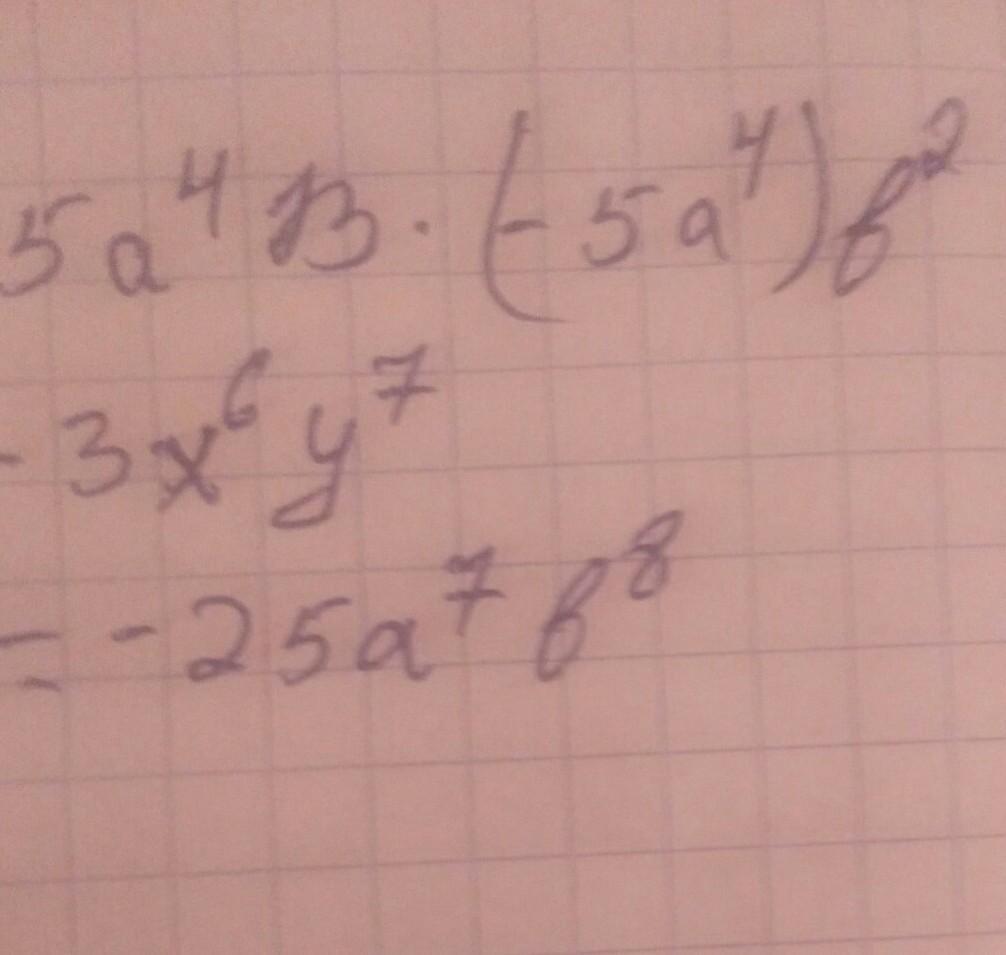 5a⁴B · (-5a⁴)b²
- 3x⁶y⁷
= -25a⁷b⁸